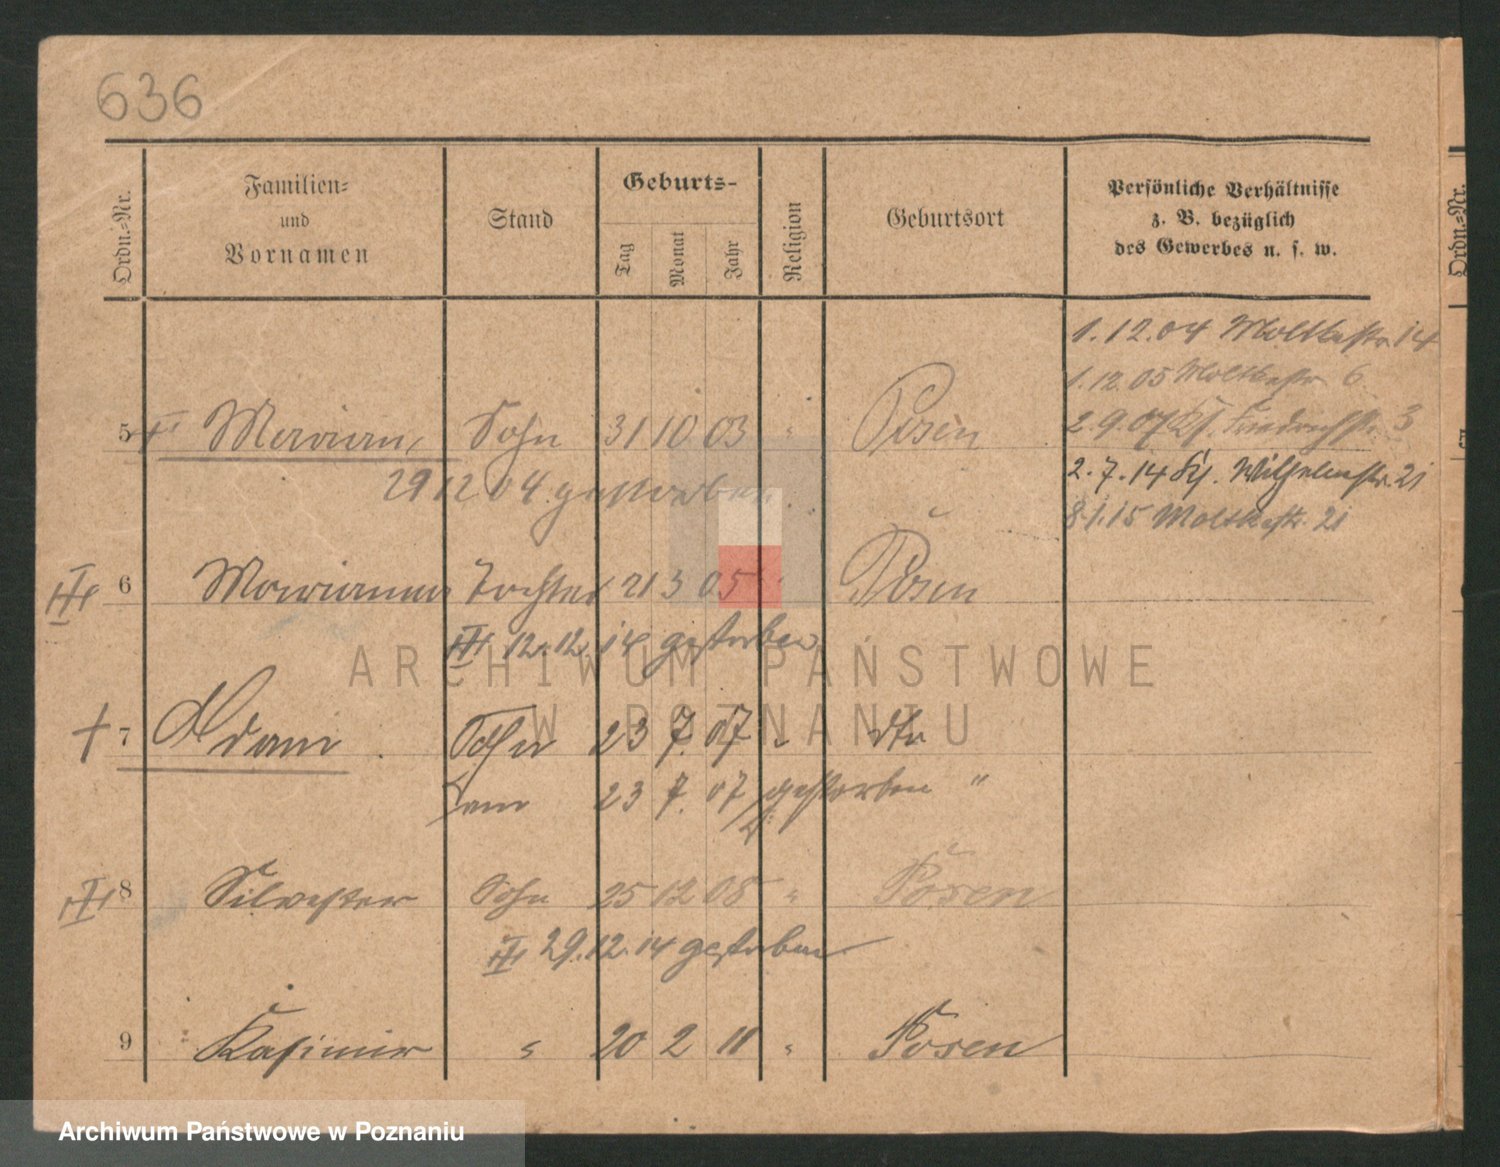 636
Ordn.-Nr.
Familien-
und
Vornamen
Stand
Geburts-
Tag
Monat
Jahr
Religion
Geburtsort
Persönliche Verhältnisse
z. B. bezüglich
des Gewerbes u. s. w.
Ordn.-Nr.
1.12.04 Moltkestr. 14
1.12.05 Moltkestr. 6
5 Marian, Sohn 31 10 03 " Posen
2.9.07 Friedrichstr. 3
29 12 04 gestorben
2.7.14 Wilhelmstr. 21
8.1.15 Moltkestr. 21
6 Marianna Tochter 21 3 05 " Posen
12.12.14 gestorben
ARCHIWUM PAŃSTWOWE
W POZNANIU
† 7 Adam Sohn 23 7. 07 " dto
am 23 7. 07 gestorben "
8 Silvester Sohn 25 12 08 " Posen
29.12.14 gestorben
9 Kasimir " 20 2 11 " Posen
Archiwum Państwowe w Poznaniu